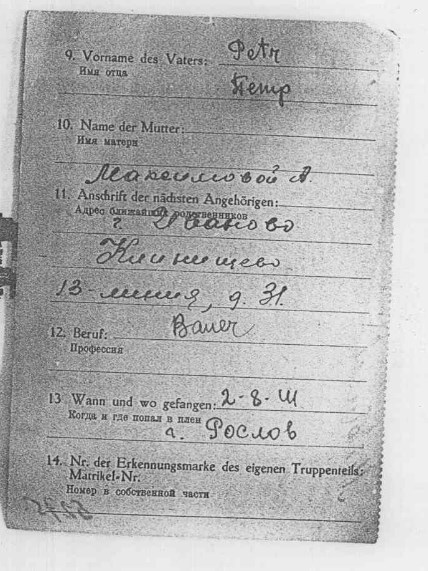 9. Vorname des Vaters: Petr
Имя отца
Петр
10. Name der Mutter:
Имя матери
Максимовой А.
11. Anschrift der nächsten Angehörigen:
Адрес ближайших родственников
г. Иваново
13-линия, д. 31.
12. Beruf: Bauer
Профессия
13. Wann und wo gefangen: 2-8-41
Когда и где попал в плен
г. Рослов
14. Nr. der Erkennungsmarke des eigenen Truppenteils:
Matrikel-Nr.
Номер в собственной части